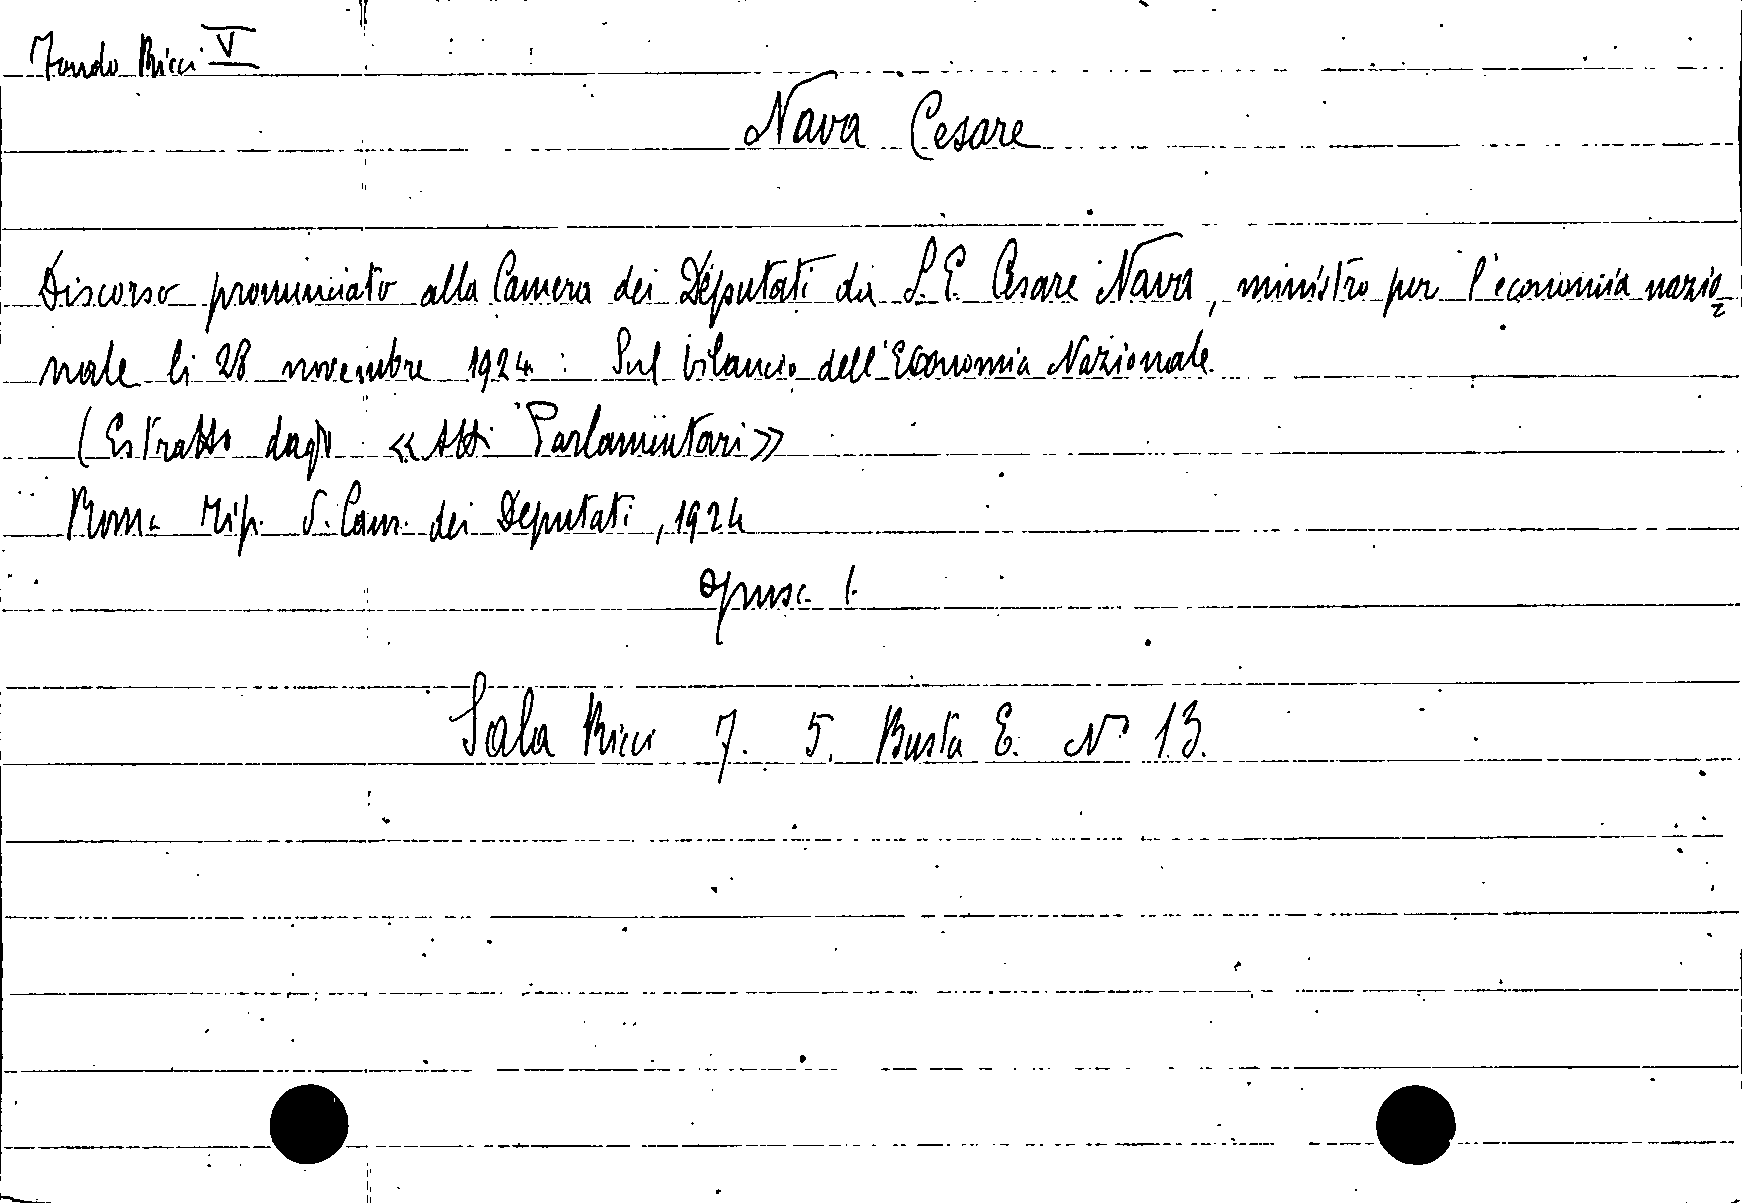 Fondo Ricci V
Nava Cesare
Discorso pronunciato alla Camera dei Deputati da S.E. Cesare Nava, ministro per l'economia nazio
nale li 28 novembre 1924: Sul bilancio dell'Economia Nazionale.
(Estratto dagli «Atti Parlamentari»
Roma Tip. d. Cam. dei Deputati, 1924
opusc. 1.
Sala Ricci 7. 5. Busta E. N° 13.